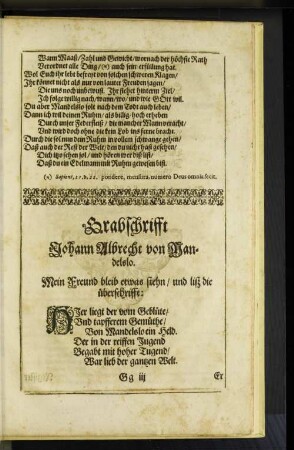 Wann Maaß/ Zahl und Gewicht/ wornach der höchste Rath
Verordnet alle Ding/ (*) auch sein erfüllung hat.
Wol Euch ihr lebt befreyt von solchen schweren Klagen/
Ihr könnet nicht als nur von lauter Freuden sagen/
Die uns noch unbewust. Ihr stehet hinterm Ziel/
Ich folge willig nach/ wann/ wo/ und wie GOtt wil.
Du aber Mandelslo solt nach dem Todt auch leben/
Dann ich wil deinen Ruhm/ als billig/ hoch erheben
Durch unser Federkufft/ die mancher Mann veracht/
Und wird doch ohne die kein Lob ins ferne bracht.
Durch die sol nun dein Ruhm in vollem schwange gehen/
Daß auch der Rest der Welt/ den du nicht hast gesehen/
Dich itzo sehen sol/ und hören wer du bist/
Daß du ein Edelmann mit Ruhm gewesen bist.
(*) Sapient. 11. v. 22. pondere, mensura, numero Deus omnia fecit.
Grabschrifft
Johann Albrecht von Man-
delslo.
Mein Freund bleib etwas stehn/ und liß die
überschrifft:
HIer liegt der vom Geblüte/
Und tapfferem Gemüthe/
Von Mandelslo ein Held.
Der in der reiffen Jugend
Begabt mit hoher Tugend/
War lieb der gantzen Welt.
Gg iij
Er